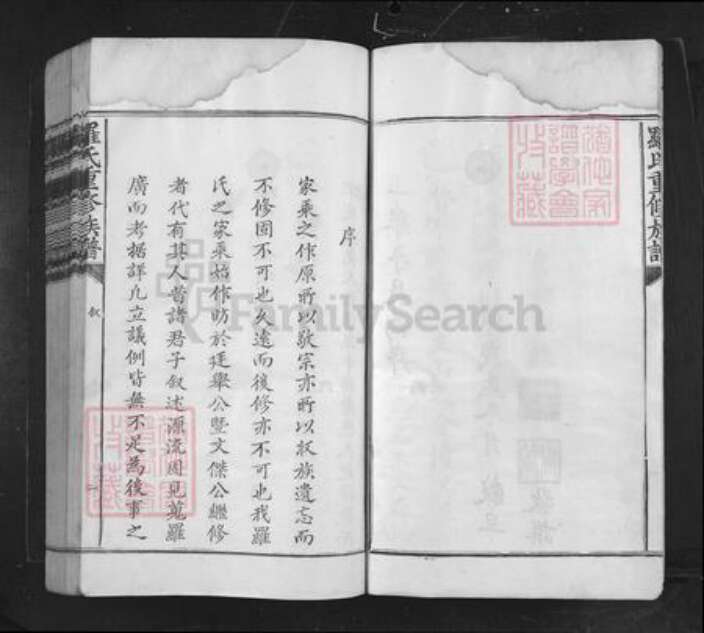 羅氏重修族譜
序
家乘之作原所以敬宗亦所以收族遺忘而
不修固不可也久遠而後修亦不可也我羅
氏之家乘始作昉於廷舉公暨文傑公繼修
者代有其人昔諸君子叙述源流固見蒐羅
廣而考據詳凡立議例皆無不足為後事之
羅氏重修族譜
叙
FamilySearch